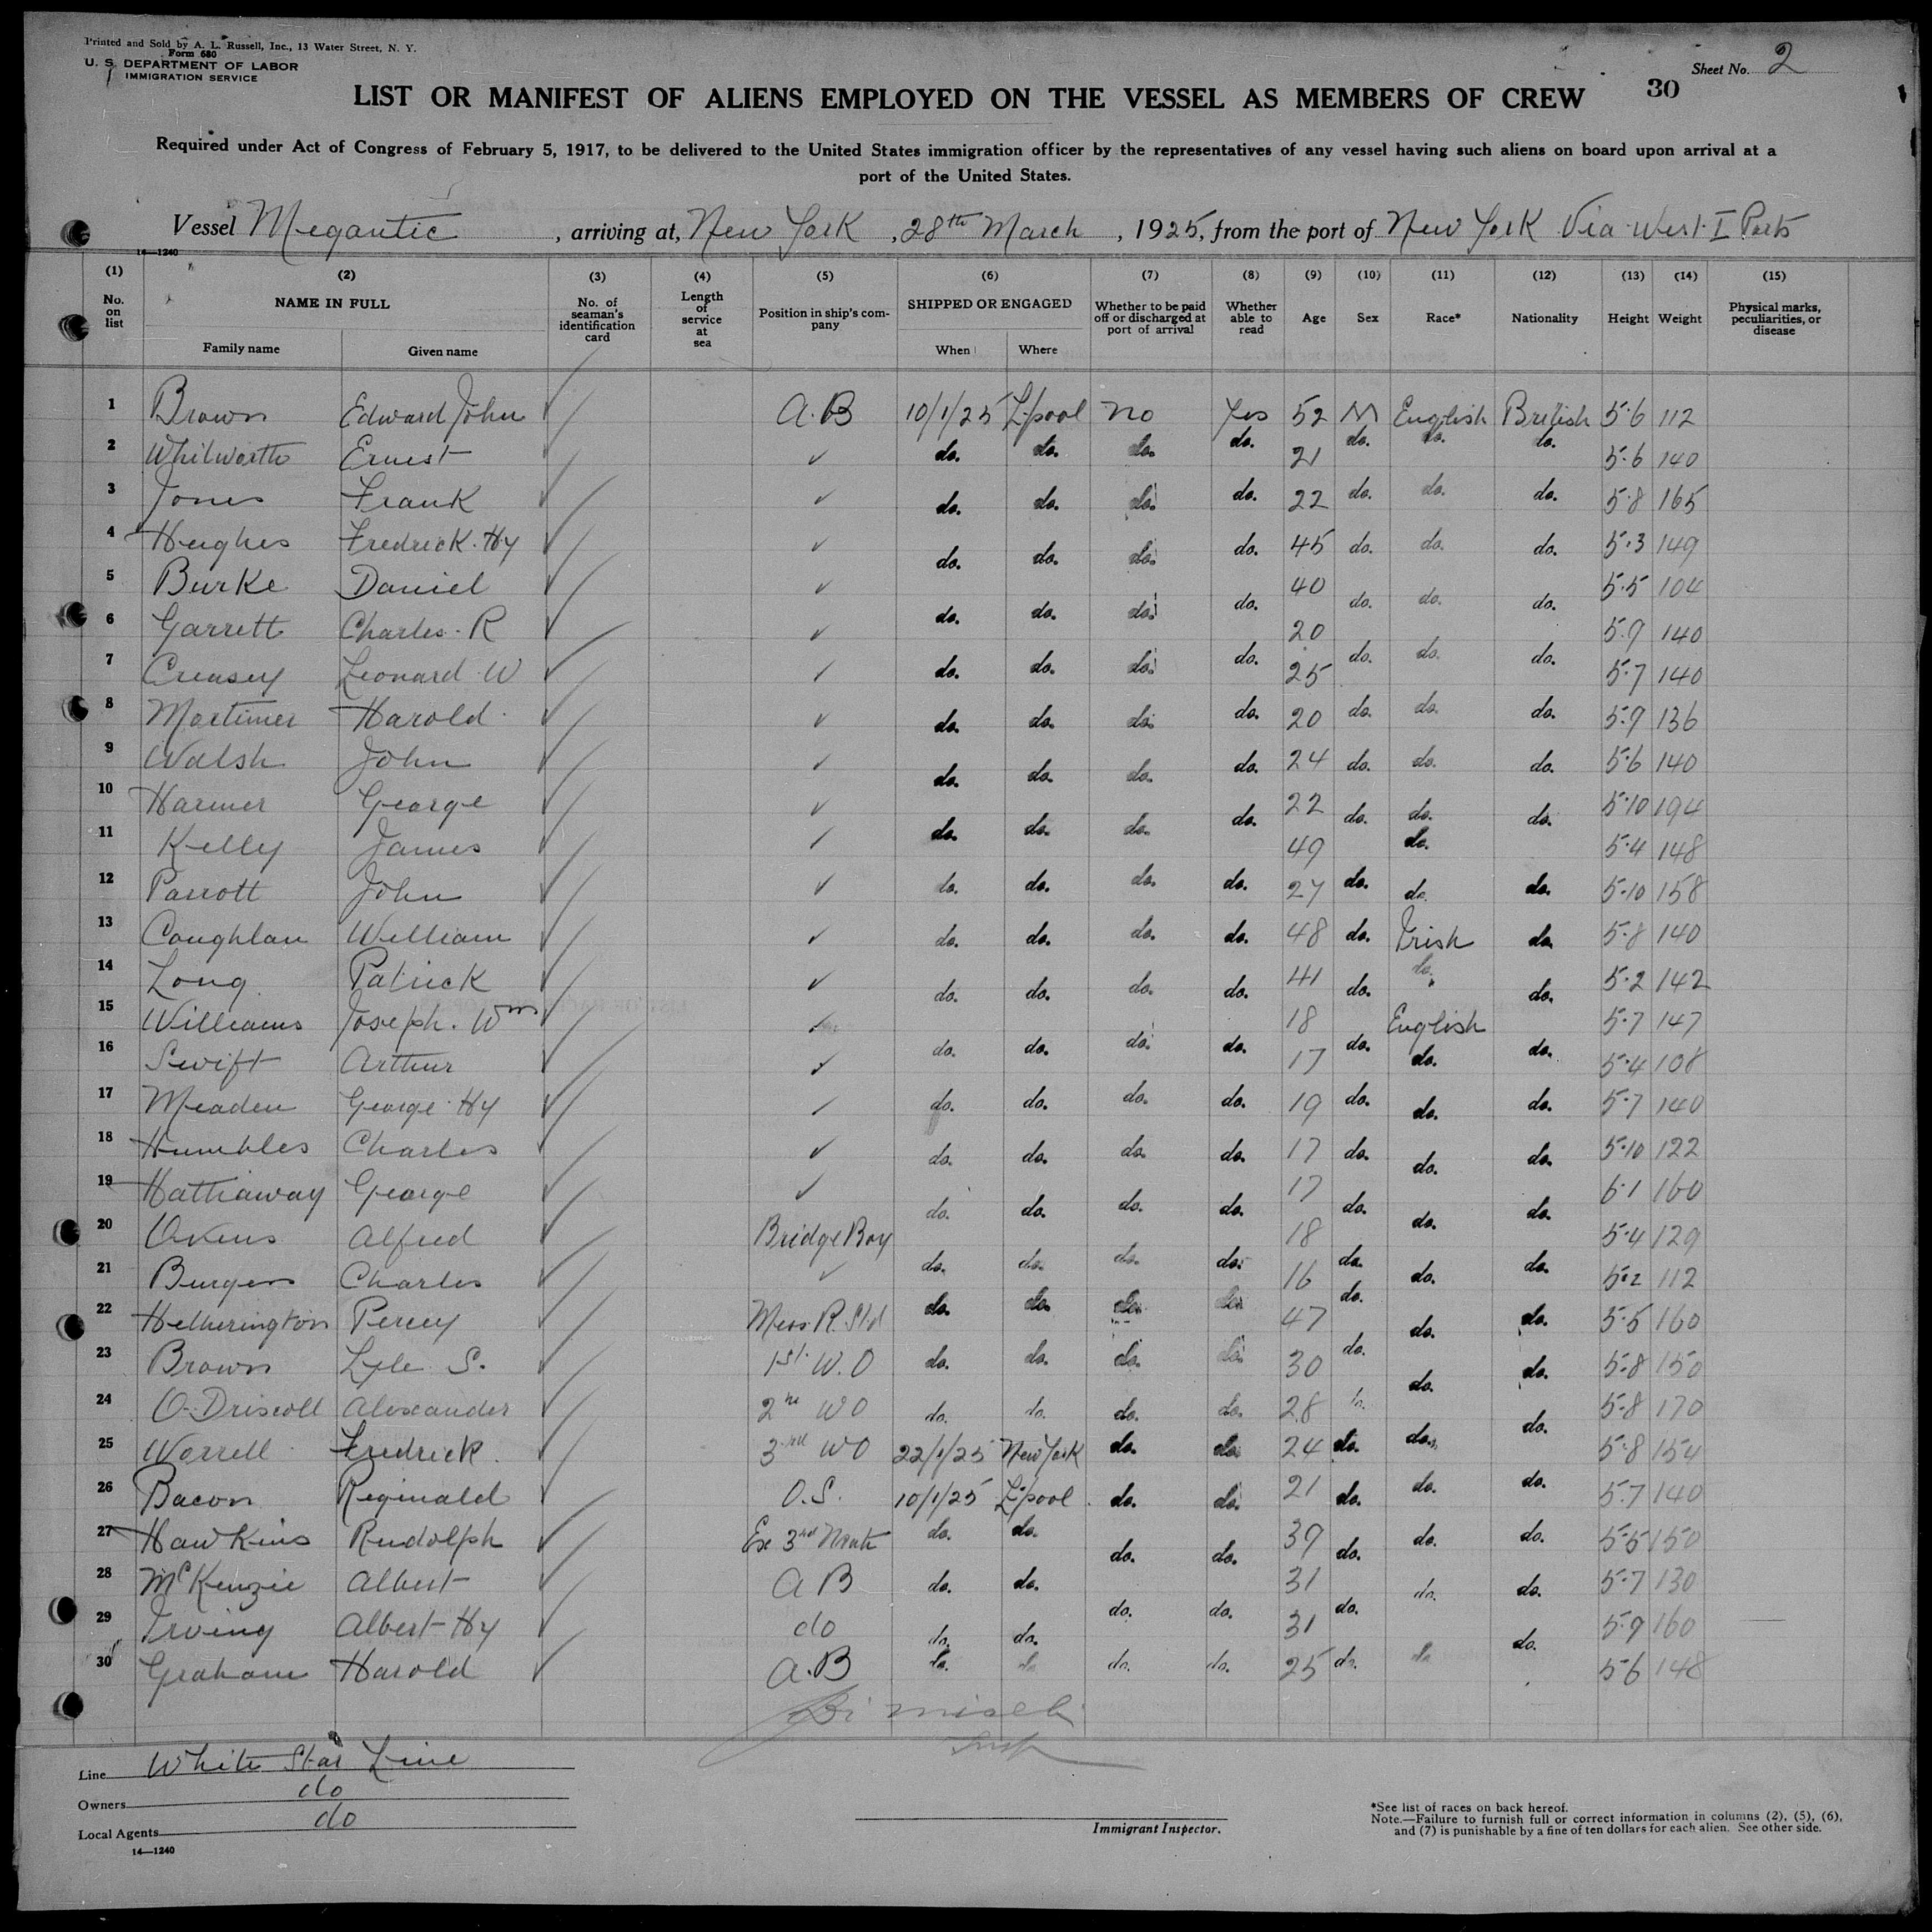 Printed and Sold by A. L. Russell, Inc., 13 Water Street, N. Y.
Form 680
U. S. DEPARTMENT OF LABOR
IMMIGRATION SERVICE
Sheet No. 2
30
LIST OR MANIFEST OF ALIENS EMPLOYED ON THE VESSEL AS MEMBERS OF CREW
Required under Act of Congress of February 5, 1917, to be delivered to the United States immigration officer by the representatives of any vessel having such aliens on board upon arrival at a
port of the United States.
Vessel Megantic, arriving at, New York, 28th March, 1925, from the port of New York Via West I Ports
14—1240
(1) (2) (3) (4) (5) (6) (7) (8) (9) (10) (11) (12) (13) (14) (15)
No. on list NAME IN FULL No. of seaman's identification card Length of service at sea Position in ship's company SHIPPED OR ENGAGED Whether to be paid off or discharged at port of arrival Whether able to read Age Sex Race* Nationality Height Weight Physical marks, peculiarities, or disease
Family name Given name When Where
1 Brown Edward John A.B 10/1/25 L'pool no Yes 52 M English British 5.6 112
2 Whitworth Ernest do. do. do. do. 21 do. do. do. 5.6 140
3 Jones Frank do. do. do. do. 22 do. do. do. 5.8 165
4 Hughes Fredrick. Hy do. do. do. do. 45 do. do. do. 5.3 149
5 Burke Daniel do. do. do. do. 40 do. do. do. 5.5 104
6 Garrett Charles. R do. do. do. do. 20 do. do. do. 5.9 140
7 Creasey Leonard W do. do. do. do. 25 do. do. do. 5.7 140
8 Mortimer Harold do. do. do. do. 20 do. do. do. 5.9 136
9 Walsh John do. do. do. do. 24 do. do. do. 5.6 140
10 Harmer George do. do. do. do. 22 do. do. do. 5.10 194
11 Kelly James 49 do. 5.4 148
12 Parrott John do. do. do. do. 27 do. do. do. 5.10 158
13 Coughlan William do. do. do. do. 48 do. Irish do. 5.8 140
14 Long Patrick do. do. do. do. 41 do. do. do. 5.2 142
15 Williams Joseph. Wm 18 English 5.7 147
16 Swift Arthur do. do. do. do. 17 do. do. do. 5.4 108
17 Meaden George Hy do. do. do. do. 19 do. do. do. 5.7 140
18 Humbles Charles do. do. do. do. 17 do. do. do. 5.10 122
19 Hathaway George do. do. do. do. 17 do. do. do. 6.1 160
20 Owens Alfred Bridge Boy 18 5.4 129
21 Burgess Charles do. do. do. do. 16 do. do. do. 5.2 112
22 Hetherington Percy Mess. R. Std do. do. do. do. 47 do. do. do. 5.5 160
23 Brown Lyle S. 1st W.O do. do. do. do. 30 do. do. do. 5.8 150
24 O'Driscoll Alexander 2nd WO do. do. do. do. 28 do. do. 5.8 170
25 Worrell Fredrick 3rd WO 22/1/25 New York do. do. 24 do. do. 5.8 154
26 Bacon Reginald O.S. 10/1/25 L'pool do. do. 21 do. do. do. 5.7 140
27 Hawkins Rudolph Ex 3rd Mate do. do. do. do. 39 do. do. do. 5.5 150
28 McKenzie Albert A B do. do. 31 do. do. 5.7 130
29 Irving Albert Hy do do. do. do. do. 31 do. do. 5.9 160
30 Graham Harold A.B do. do. do. do. 25 do. do. 5.6 148
Line White Star Line
Owners do
Local Agents do
14—1240
Immigrant Inspector.
*See list of races on back hereof.
Note.—Failure to furnish full or correct information in columns (2), (5), (6),
and (7) is punishable by a fine of ten dollars for each alien. See other side.